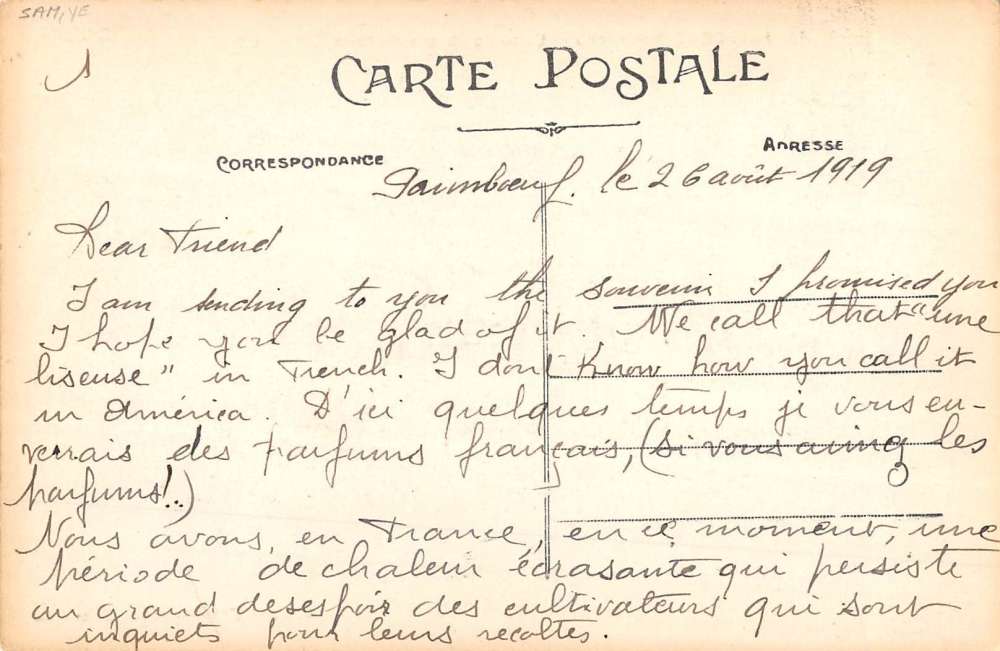 SAM, YE
CARTE POSTALE
CORRESPONDANCE
ADRESSE
Paimboeuf. le 26 août 1919
Dear Friend
I am sending to you the souvenir I promised you
I hope you be glad of it. We call that "une
liseuse" in French. I don't know how you call it
in América. D'ici quelques temps je vous en-
verrais des parfums français, (si vous aimez les
parfums!..)
Nous avons, en France, en ce moment, une
période de chaleur écrasante qui persiste
au grand desespoir des cultivateurs qui sont
inquiets pour leurs recoltes.